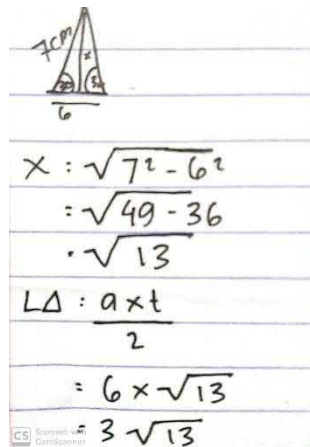 7cm
x
6
X : √7² - 6²
: √49 - 36
· √13
L∆ : a x t
2
= 6 x √13
= 3 √13
CS Scanned with CamScanner